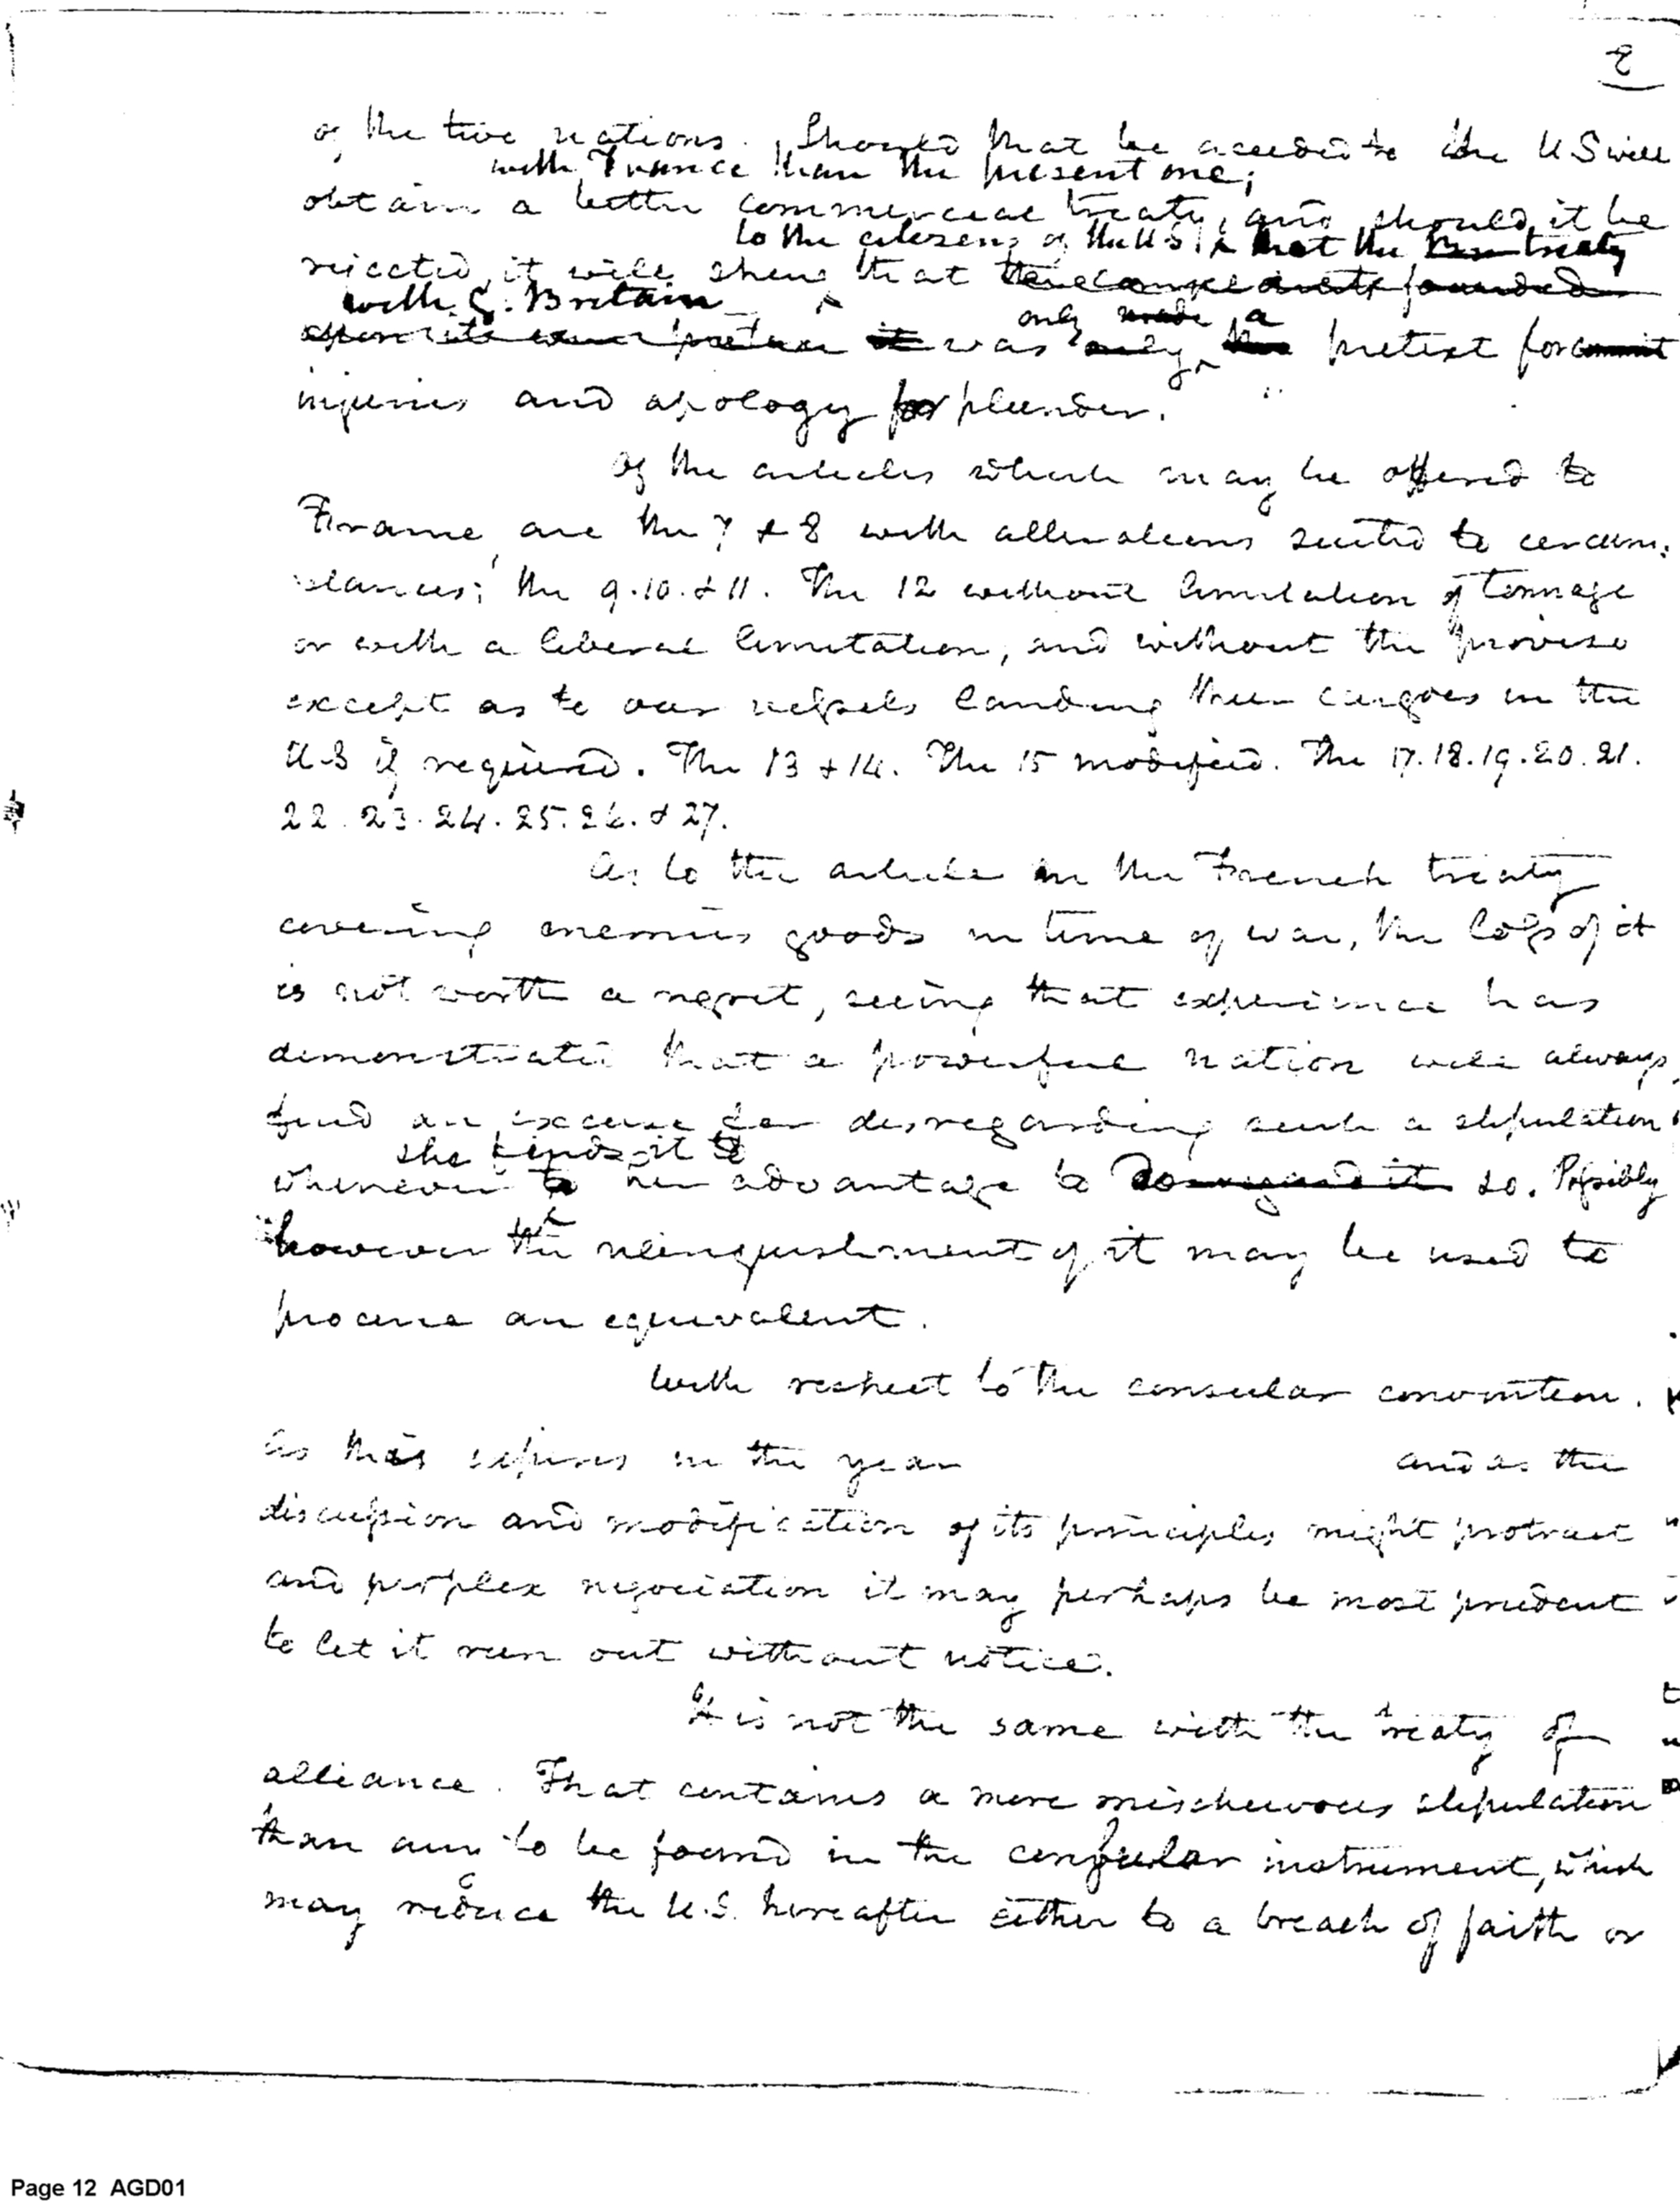 8
of the two nations. Should that be acceded to the U S will
with France than the present one;
obtain a better commercial treaty, and should it be
to the citizens of the U S that the treaty
rejected, it will shew that the complaints founded
with G. Britain
upon it was only made a pretext for
injuries and apology for plunder.
Of the articles which may be offered to
France, are the 7 & 8 with alterations suited to circum:
stances; the 9. 10. & 11. The 12 without limitation of tonnage
or with a liberal limitation, and without the proviso
except as to our vessels landing their cargoes in the
U-S if required. The 13 & 14. The 15 modified. The 17. 18. 19. 20. 21.
22. 23. 24. 25. 26. & 27.
As to the article in the French treaty
covering enemies goods in time of war, the loss of it
is not worth a regret, seeing that experience has
demonstrated that a powerful nation will always
find an excuse for disregarding such a stipulation
she finds it to
whenever her advantage to do so. Possibly
however the relinquishment of it may be used to
procure an equivalent.
With respect to the consular convention.
As this expires in the year and as the
discussion and modification of its principles might protract
and perplex negociation it may perhaps be most prudent
to let it run out without notice.
It is not the same with the treaty of
alliance. That contains a more mischievous stipulation
than any to be found in the consular instrument, which
may reduce the U.S. hereafter either to a breach of faith or
Page 12 AGD01